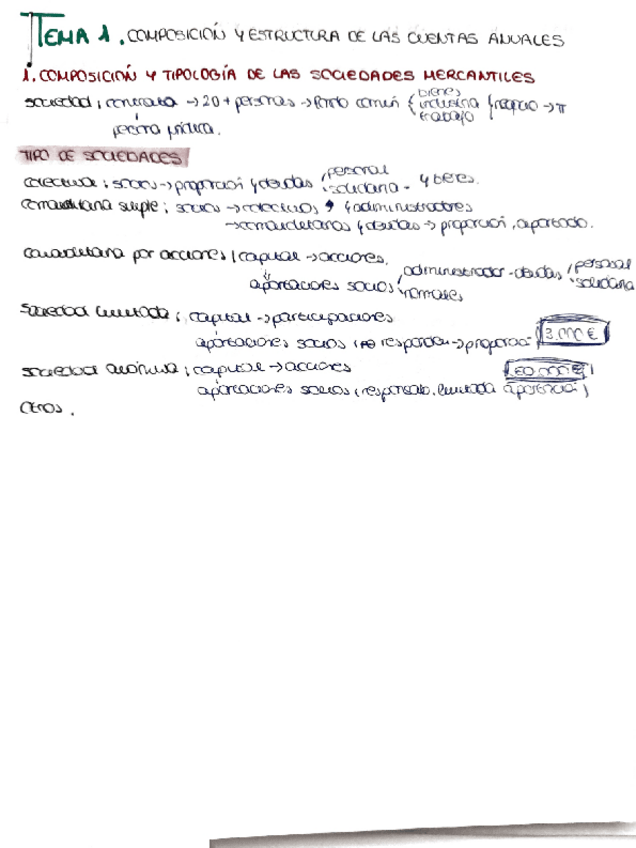 TEMA 1. COMPOSICIÓN Y ESTRUCTURA DE LAS CUENTAS ANUALES
1. COMPOSICIÓN Y TIPOLOGÍA DE LAS SOCIEDADES MERCANTILES
sociedad; contrato → 2 o + personas → fondo común { bienes industria trabajo } negocio → π
persona jurídica.
TIPO DE SOCIEDADES
colectiva; socios → proporción y deudas personal solidaria - y bienes.
comanditaria simple; socios → colectivos y administradores
→ comanditarios y deudas → proporción, aportado.
comanditaria por acciones; capital → acciones.
aportaciones socios administrador - deudas personal solidaria
normales
sociedad limitada; capital → participaciones
aportaciones socios (no responden → proporció 3.000 €
sociedad anónima; capital → acciones 60.000 €
aportaciones socios (responsab. limitada aportació)
Otros.